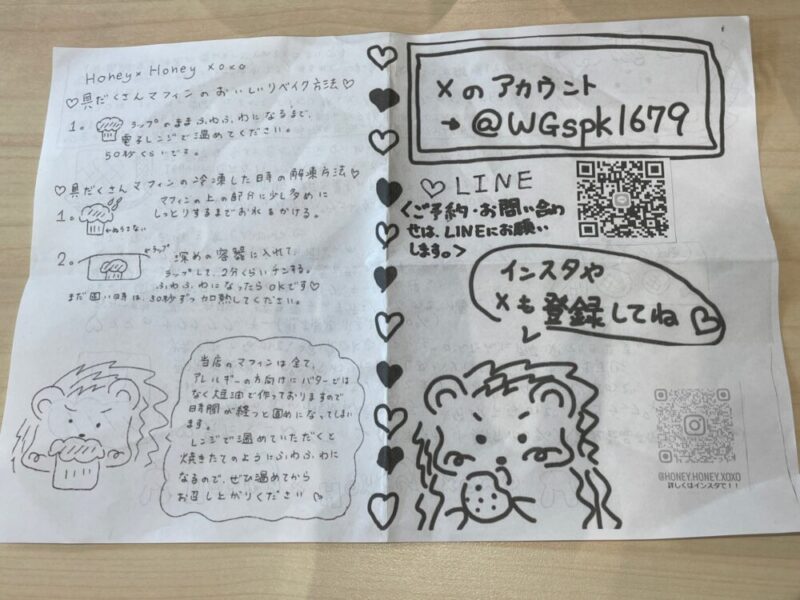 Honey×Honey xoxo
♡具だくさんマフィンのおいしいリベイク方法♡
1。ラップのままふわふわになるまで、
電子レンジで温めてください。
50秒くらいです。
♡具だくさんマフィンの冷凍した日時の解凍方法♡
1。マフィンの上の部分に少し多めに
しっとりするまでお水をかける。
←ぬらさない
2。←ラップ
深めの容器に入れて
ラップして、2分くらいチンする。
ふわふわになったらOKです♡
まだ固い時は、30秒ずつ加熱してください。
当店のマフィンは全て、
アレルギーの方向けにバターでは
なく短油で作っておりますので
時間が経つと固めになってしまい
ます。
レンジで温めていただくと
焼きたてのようにふわふわに
なるので、ぜひ温めてから
お召し上がりください♡
Xのアカウント
→@WGspk1679
♡LINE
<ご予約・お問い合わ
せは、LINEにお願い
します。>
インスタや
Xも登録してね♡
@HONEY.HONEY.XOXO
詳しくはインスタで！！